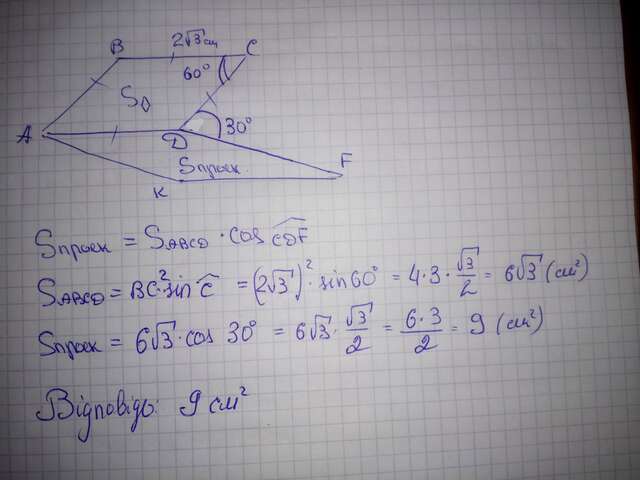 B 2√3 см C
60°
S₀
A D 30°
Sпроек
K F
Sпроек = SABCD · cos CDF
SABCD = BC² · sin C = (2√3)² · sin 60° = 4·3·√3/2 = 6√3 (см²)
Sпроек = 6√3 · cos 30° = 6√3 · √3/2 = 6·3/2 = 9 (см²)
Відповідь: 9 см²